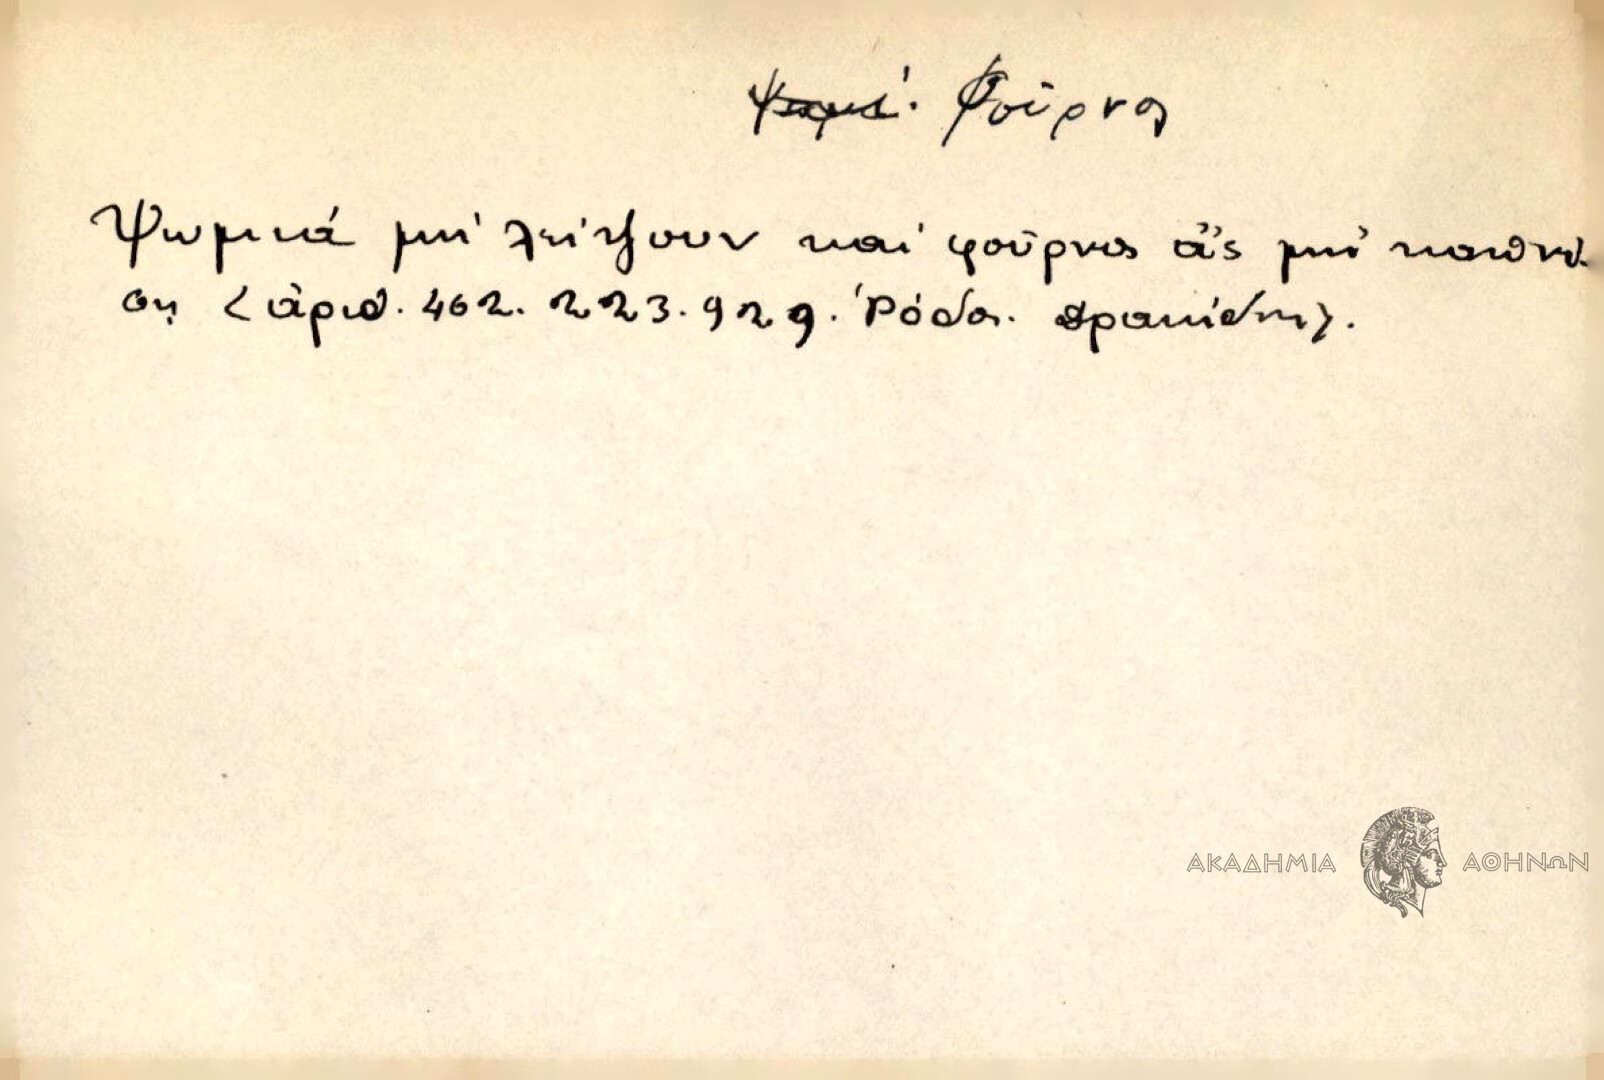 Ψωμί. Φούρνος
Ψωμιά μή λείψουν καί φούρνος ἄς μή καπνί-
σῃ (ἀριθ. 462. 223. 929. Ῥόδος. Δρακίδης).
ΑΚΑΔΗΜΙΑ ΑΘΗΝΩΝ